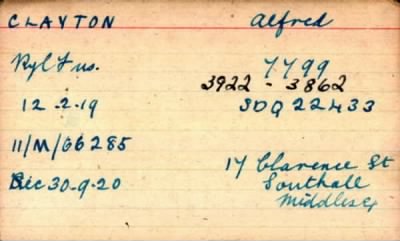 CLAYTON Alfred
Ryl Fus. 7799
3922 - 3862
12.2.19 SDQ 22433
11/M/66285
17 Clarence St
Dec 30.9.20 Southall
Middlesex